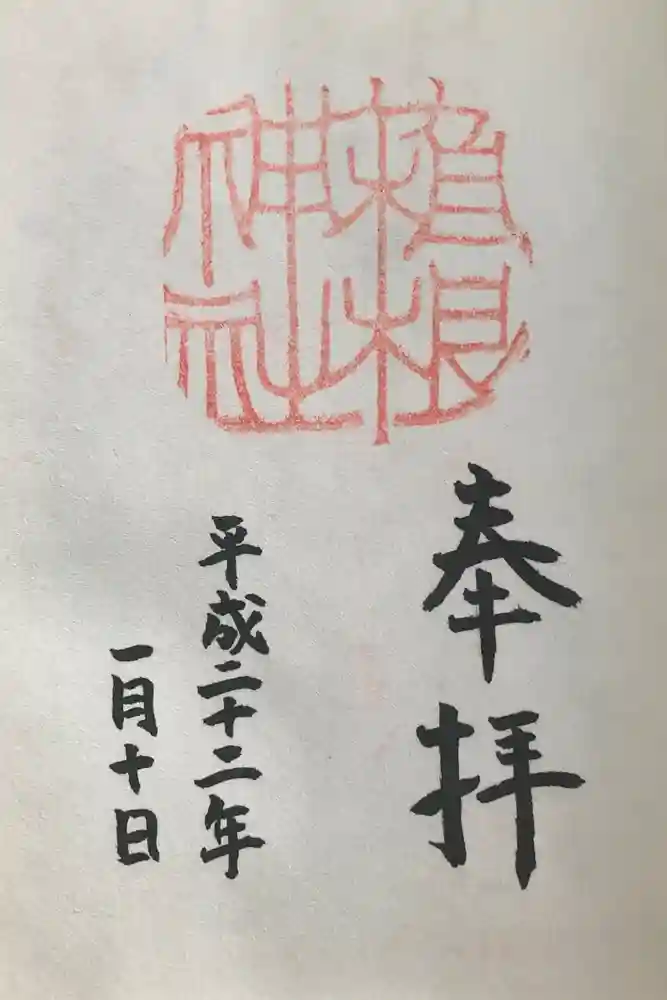 根
神社
奉拝
平成二十二年
一月十日